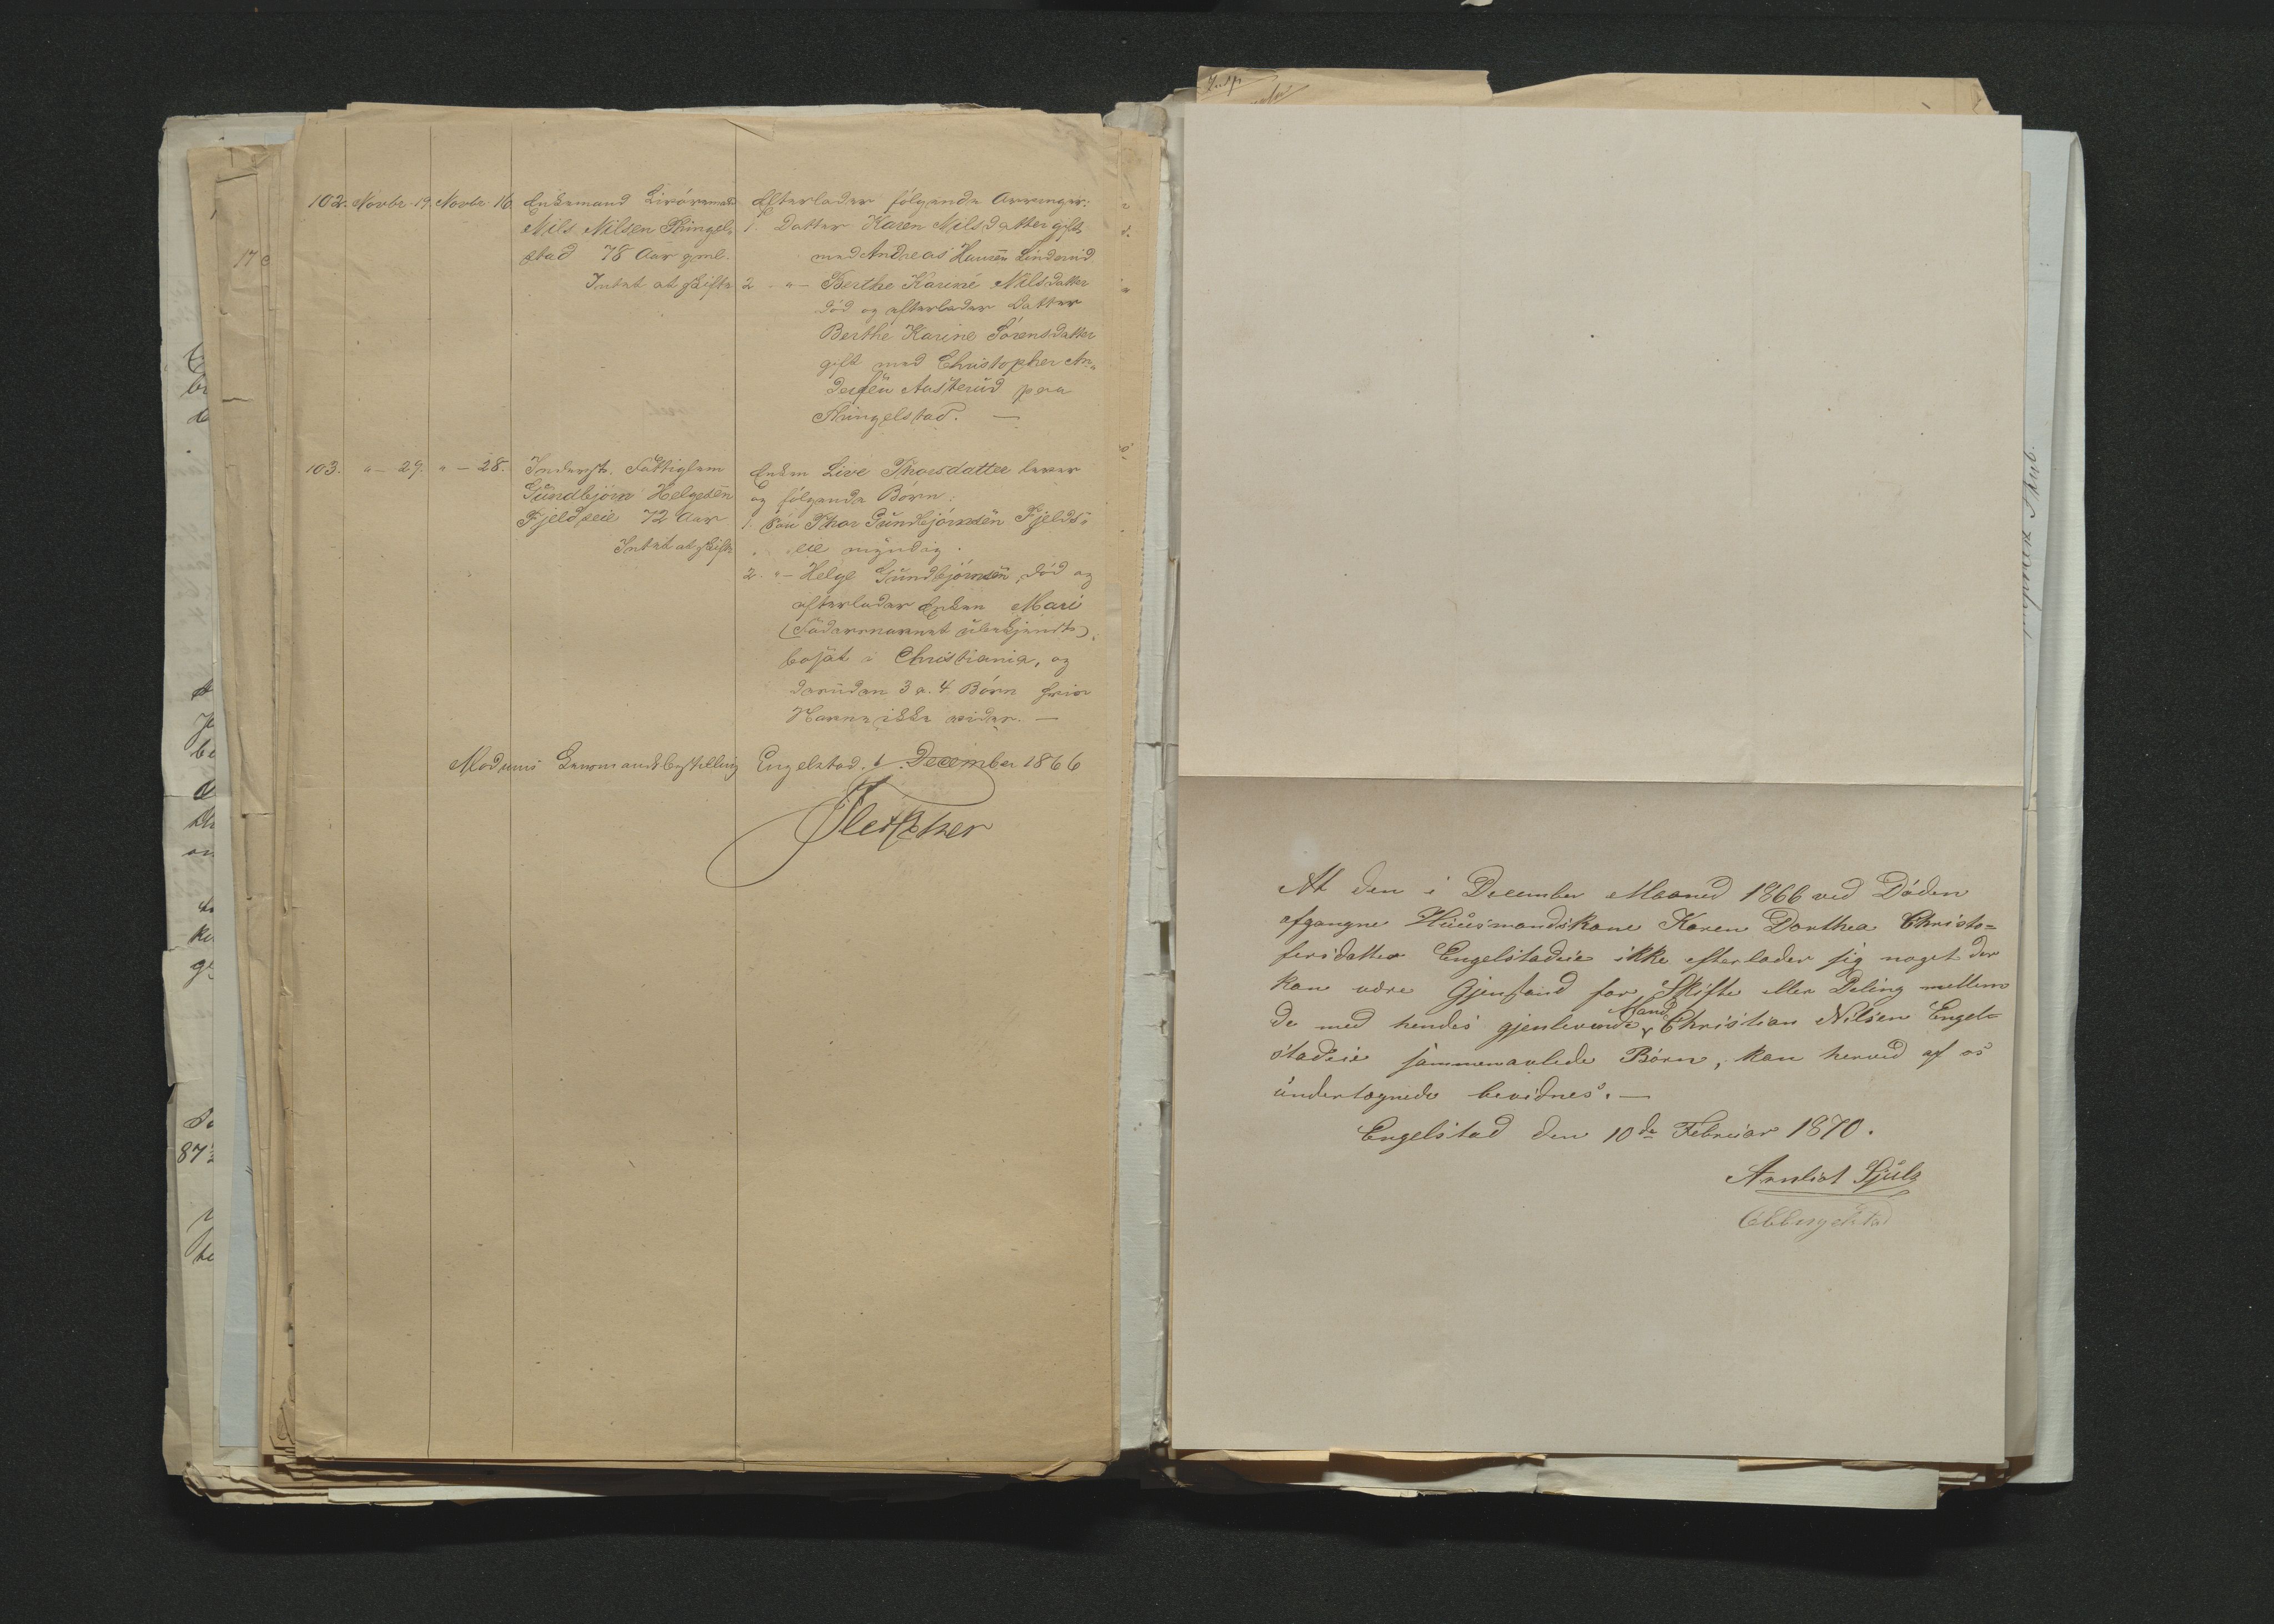 102. Novbr. 19. Novbr. 16. Enkemand Livøremand Efterlader følgende Arvinger:
Nils Nilsen Thingel- 1. Datter Karen Nilsdatter gift
stad 78 Aar gml. med Andreas Hansen Linderud
Intet at skifte 2 "— Berthe Karine Nilsdatter
død og efterlader Datter
Berthe Karine Sørensdatter
gift med Christopher An-
dersen Aasterud paa
Thingelstad. —
103. "— 29. "— 28. Inderst, Fattiglem Enken Live Thorsdatter lever
Gundbjørn Helgesen og følgende Børn:
Fjeldseie 72 Aar 1. Søn Thor Gundbjørnsen Fjelds-
Intet at skifte eie myndig.
2. "— Helge Gundbjørnsen, død og
efterlader Enken Mari
(Födernavnet ubekjendt)
bosat i Christiania, og
desuden 3 a. 4 Børn hvis
Navne ikke vides. —
Modums Lensmandsbestilling Engelstad, 1. December 1866
Fletscher
At den i December Maaned 1866 ved Döden
afgangne Huusmandskone Karen Dorthea Christo=
fersdatter Engelstadeie ikke efterlader sig noget der
kan være Gjenstand for Skifte eller Deling mellem
Mand
de med hendes gjenlevende Christian Nilsen Engel-
stadeie sammenavlede Börn, kan herved af os
undertegnede bevidnes. —
Engelstad den 10de Februar 1870.